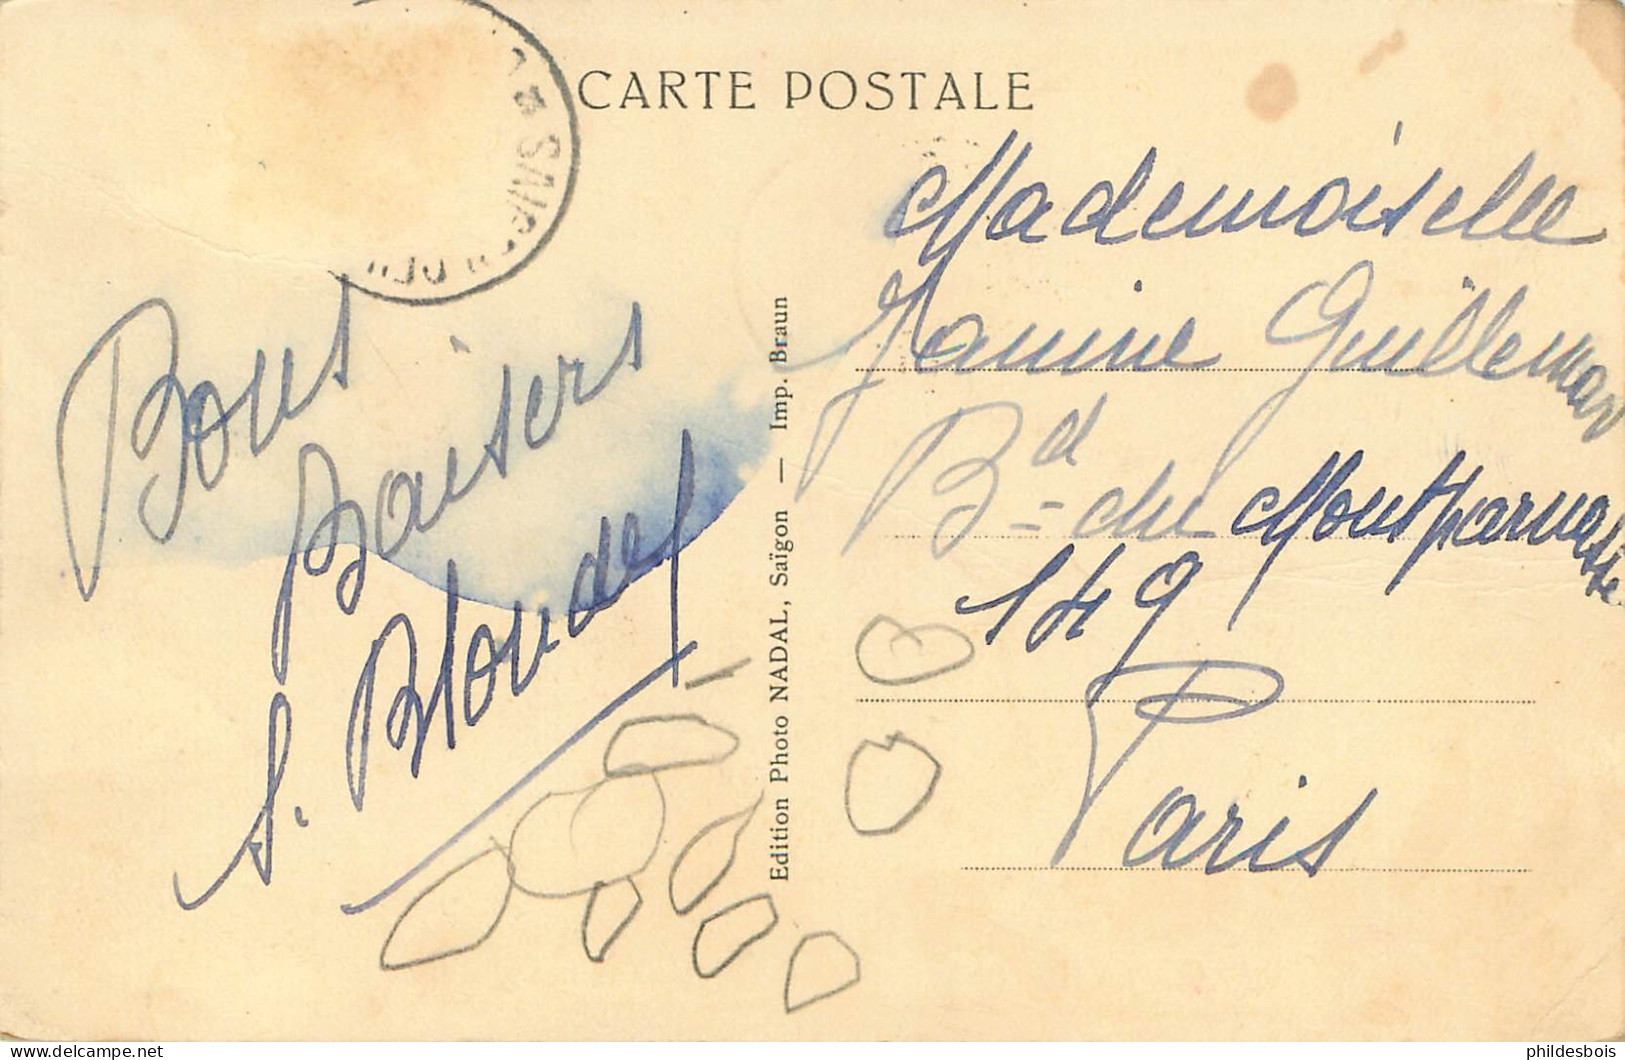 CARTE POSTALE
Bons
Baisers
S. Blondel
Edition Photo NADAL, Saïgon — Imp. Braun
Mademoiselle
Janine Guillemar
Bd du Montparnasse
149
Paris
phildesbois